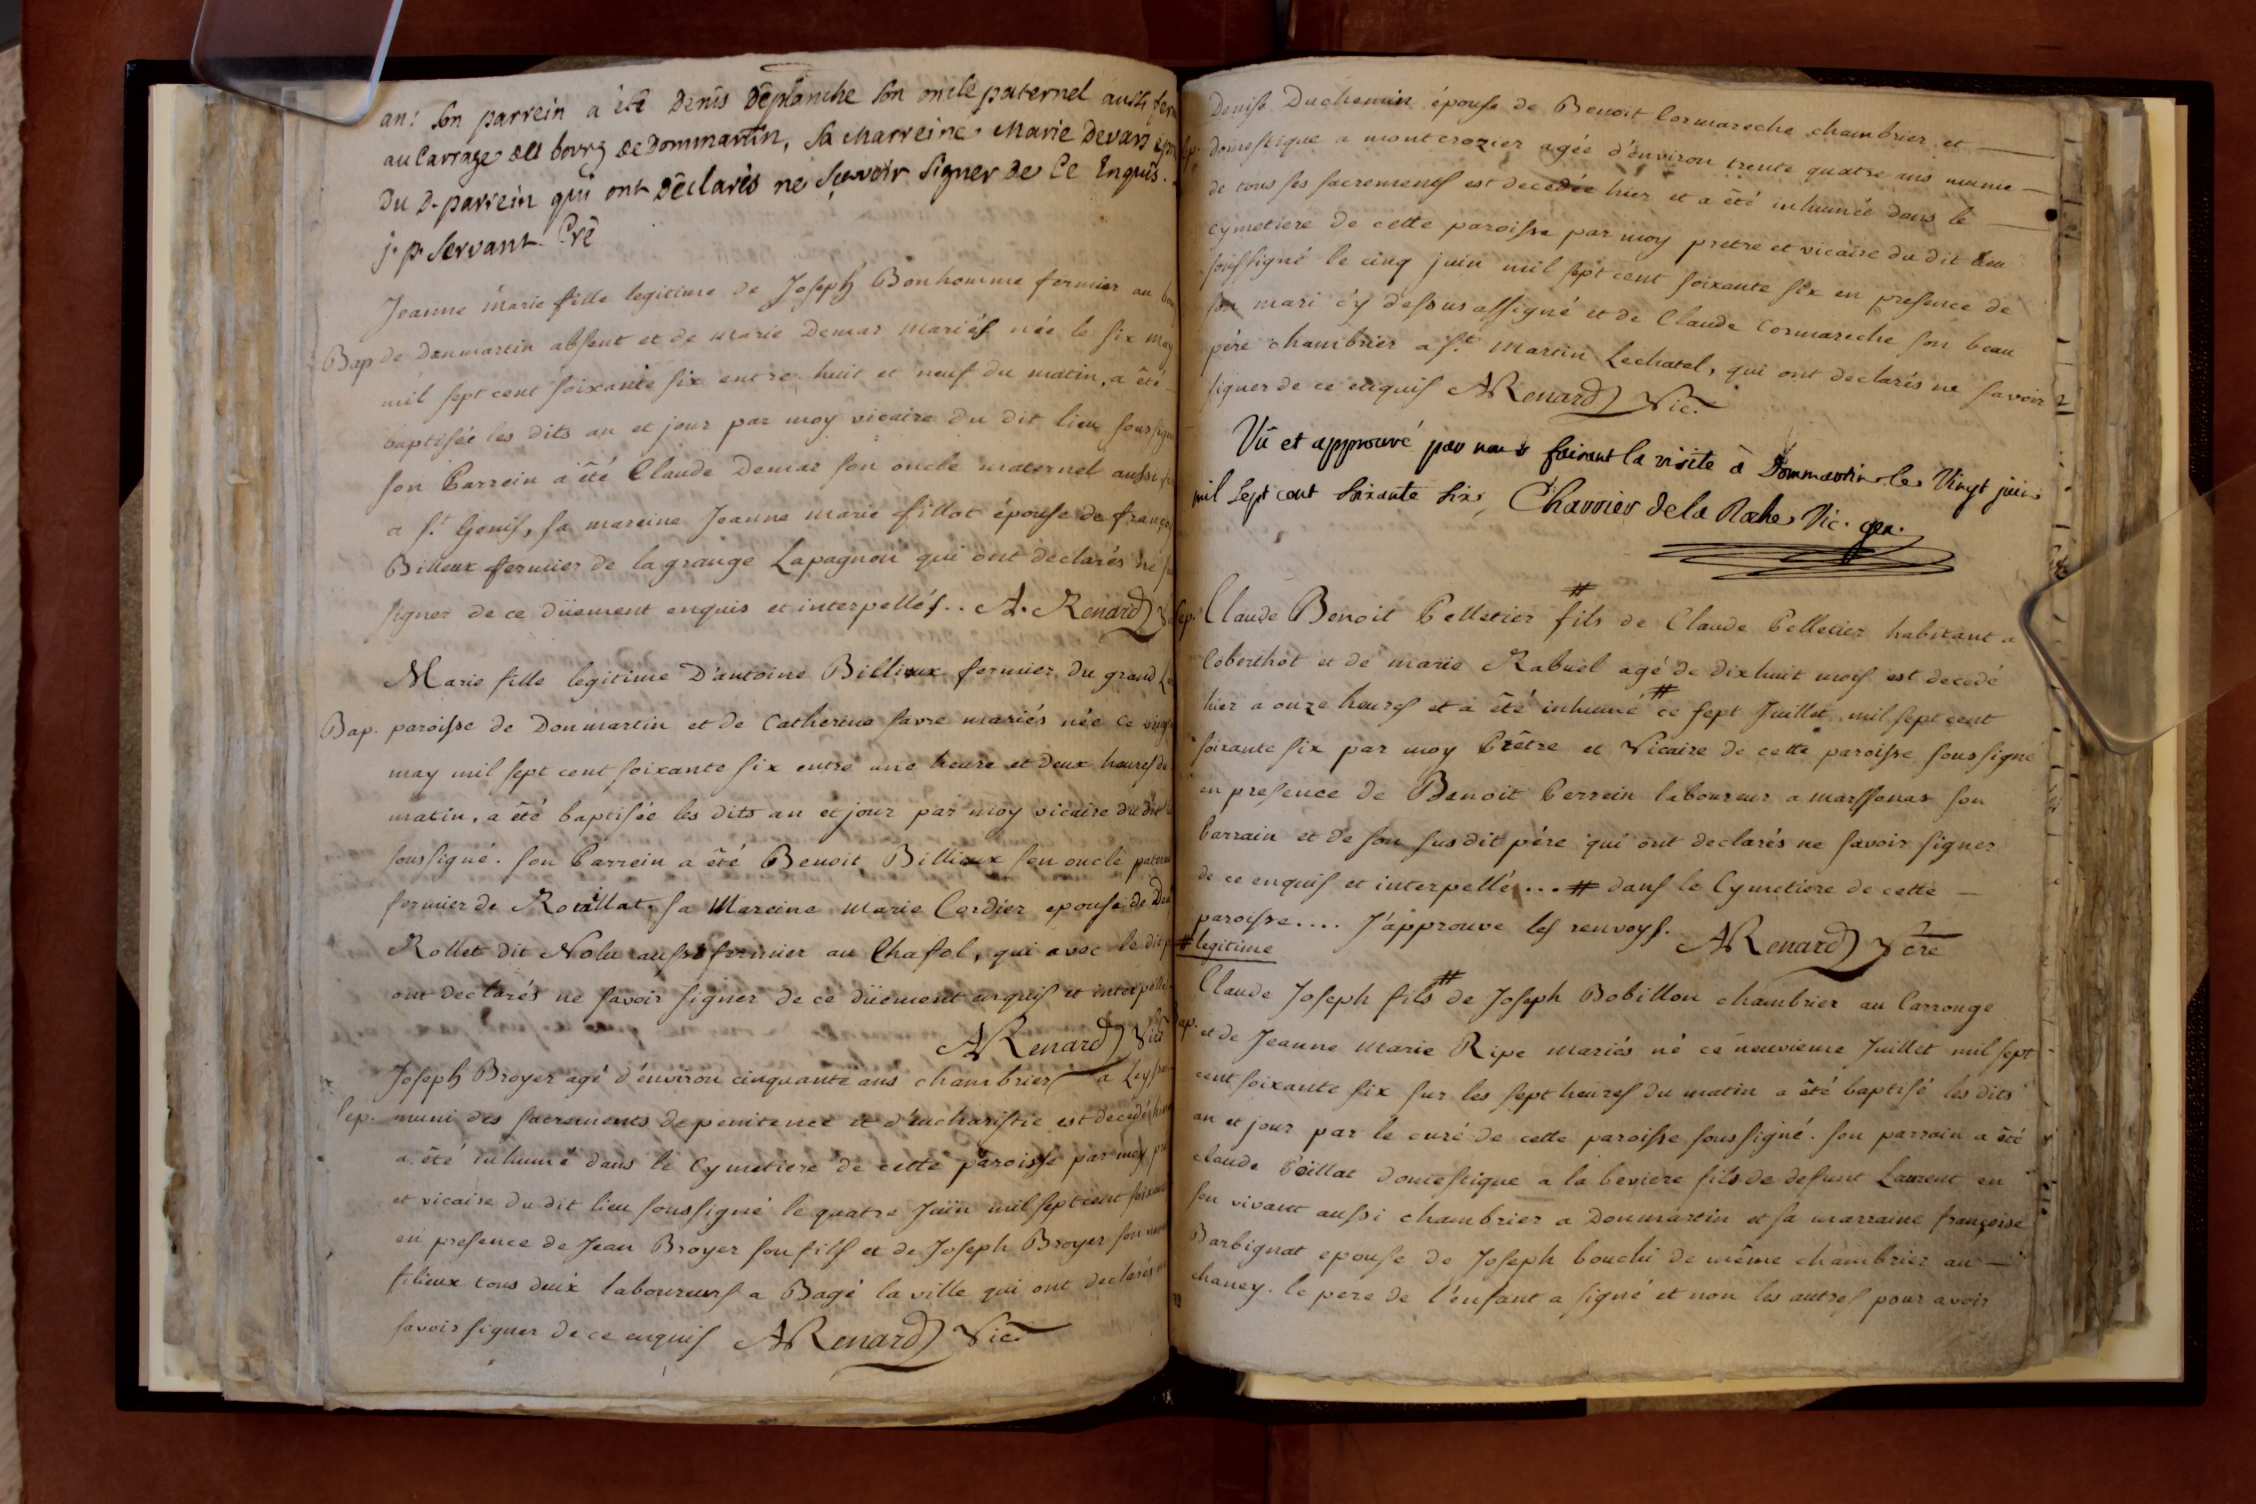 an: son parrein a été denis Déplanche son oncle paternel aussi
au Carrage du bourg de Dommartin, Sa Marreine Marie Devarz
du d. parrein qui ont déclarés ne sçavoir signer de Ce Enquis.
j. p. Servant. Pre
Jeanne marie fille legitime de Joseph Bonhomme fermier au
Bap de Donmartin absent et de marie Demar mariés née le six may
mil sept cent soixante six entre huit et neuf du matin, a été
baptisée les dits an et jour par moy vicaire du dit lieu
son Parrein a été Claude Demar son oncle maternel aussi
a st Genis, sa mareine Jeanne marie fillot épouse de
Billoux fermier de la grange Lapagnon qui ont declarés ne
signer de ce dûement enquis et interpellés.. A. Renard
Marie fille legitime D'antoine Billioux fermier du grand
Bap. paroisse de Donmartin et de Catherine favre mariés née ce
may mil sept cent soixante six entre une heure et deux heures de
matin, a été baptisée les dits an et jour par moy vicaire du dit
soussigné. son Parrein a été Benoit Billioux son oncle
fermier de Rouillat, sa Mareine marie Cordier epouse de
Rollet dit Nolu aussi fermier au Chafol, qui avec le dit
ont declarés ne savoir signer de ce dûement enquis et
ARenard Vic
Joseph Broyer agé d'environ cinquante ans chambrier a
Sep. muni des sacrements de penitence et d'eucharistie est decedé
a été inhumé dans le Cymetiere de cette paroisse par moy
et vicaire du dit lieu soussigné le quatre Juin mil sept cent
en presence de Jean Broyer son fils et de Joseph Broyer son
filieux tous deux laboureurs a Bagé la ville qui ont declarés
savoir signer de ce enquis ARenard Vic.
Denise Duchemin épouse de Benoit Cormareche chambrier et
Sep. domestique a montcrozier agée d'environ trente quatre ans munie
de tous ses sacrements est decedée hier et a été inhumée dans le
cymetiere de cette paroisse par moy pretre et vicaire du dit lieu
soussigné le cinq juin mil sept cent soixante six en presence de
son mari cy dessus assigné et de Claude Cormareche son beau
pére chambrier a st. Martin Lechatel, qui ont declarés ne savoir
signer de ce enquis ARenard Vic.
Vû et approuvé par nous faisant la visite à Dommartin le Vingt juin
mil Sept cent Soixante Six, Charrier de la Roche Vic. gen.
Sep. Claude Benoit Pelletier # fils de Claude Pelletier habitant a
Coberthot et de marie Rabuel agé de dixhuit mois est decedé
hier a onze heures et a été inhumé # ce sept Juillet mil sept cent
soixante six par moy Prêtre et Vicaire de cette paroisse soussigné
en presence de Benoit Perrein laboureur a marssonas son
Parrain et de son susdit pére qui ont declarés ne savoir signer
de ce enquis et interpellé... # dans le Cymetiere de cette
paroisse.... J'approuve les renvoys.
# legitime ARenard Vcre
Claude Joseph fils # de Joseph Bobillon chambrier au Carrouge
Bap. et de Jeanne Marie Ripe mariés né ce neuvieme Juillet mil sept
cent soixante six sur les sept heures du matin a été baptisé les dits
an et jour par le curé de cette paroisse soussigné. son parrain a été
claude Poillat domestique a la beviere fils de defunt Laurent en
son vivant aussi chambrier a Donmartin et sa marraine françoise
Barbignat epouse de Joseph bouchi de même chambrier au
chaney. le pere de l'enfant a signé et non les autres pour avoir